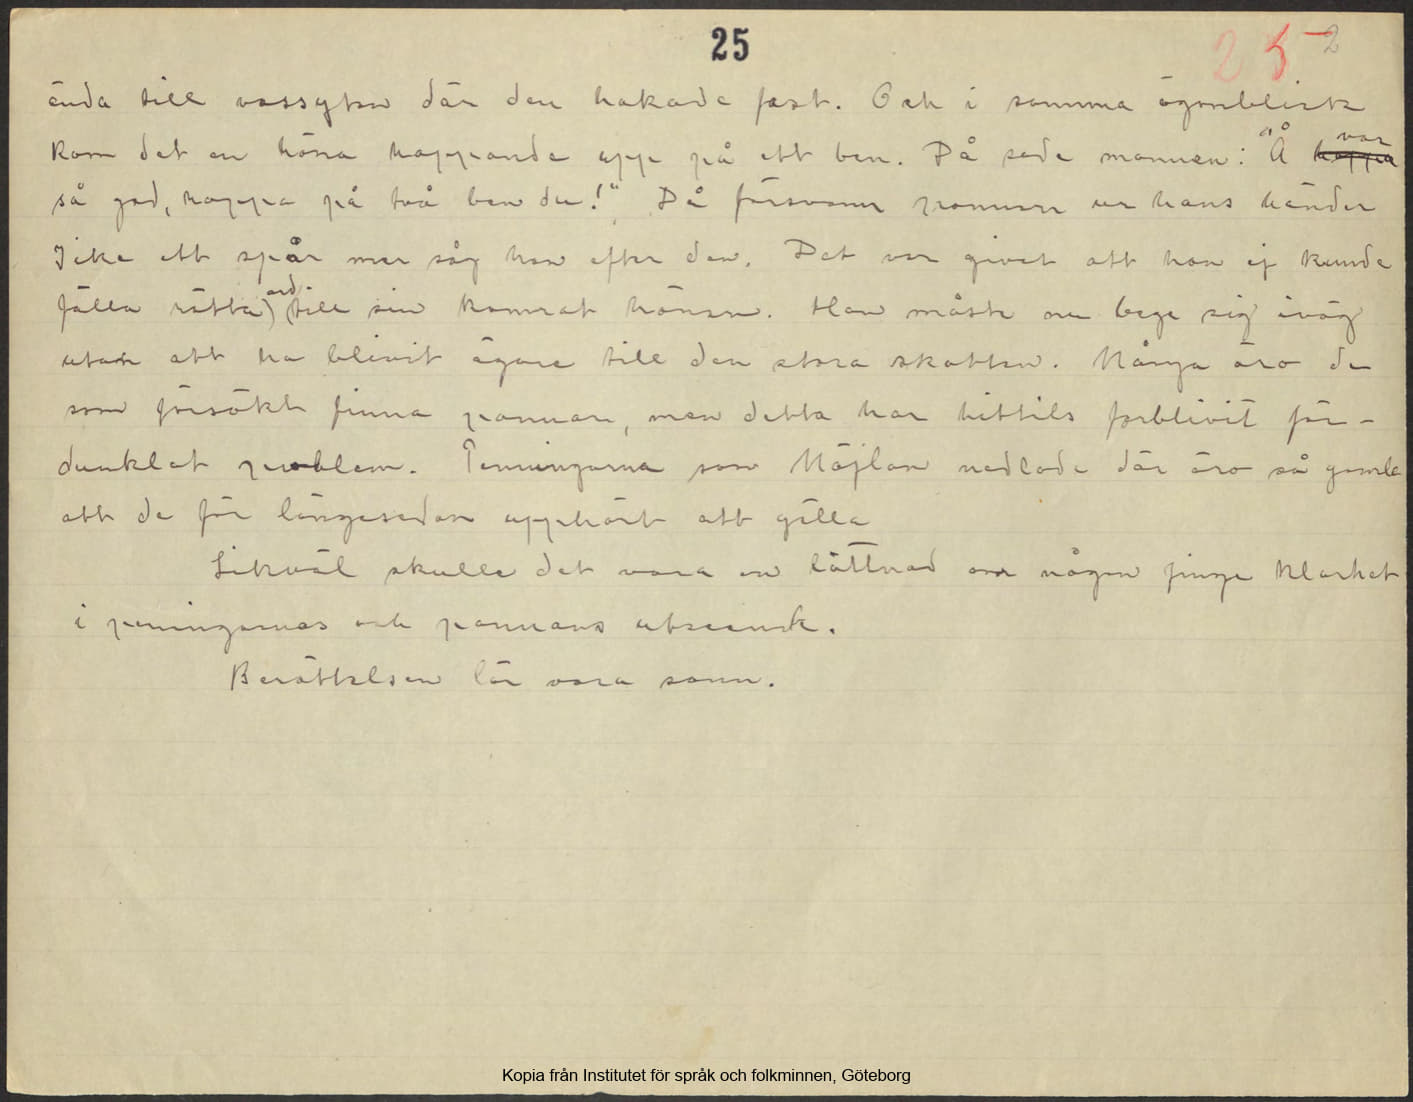 25
25 2
ända till vassytan där den hakade fast. Och i samma ögonblick
kom det en höna hoppande upp på ett ben. Då sade mannen: "Å hoppa var
så god, hoppa på två ben du!" Då försvann pannan ur hans händer
Icke ett spår mer såg han efter den. Det var givet att han ej kunde
fälla rätta ord till sin kamrat hönan. Han måste nu bege sig iväg
utan att ha blivit ägare till den stora skatten. Många äro de
som försökt finna pannan, men detta har hittils forblivit för-
dunklat problem. Penningarna som Majlan nedlade där äro så gamla
att de för längesedan upphört att gälla
Likväl skulle det vara en lättnad om någon finge klarhet
i peningarnas och pannans utseende.
Berättelsen lär vara sann.
Kopia från Institutet för språk och folkminnen, Göteborg